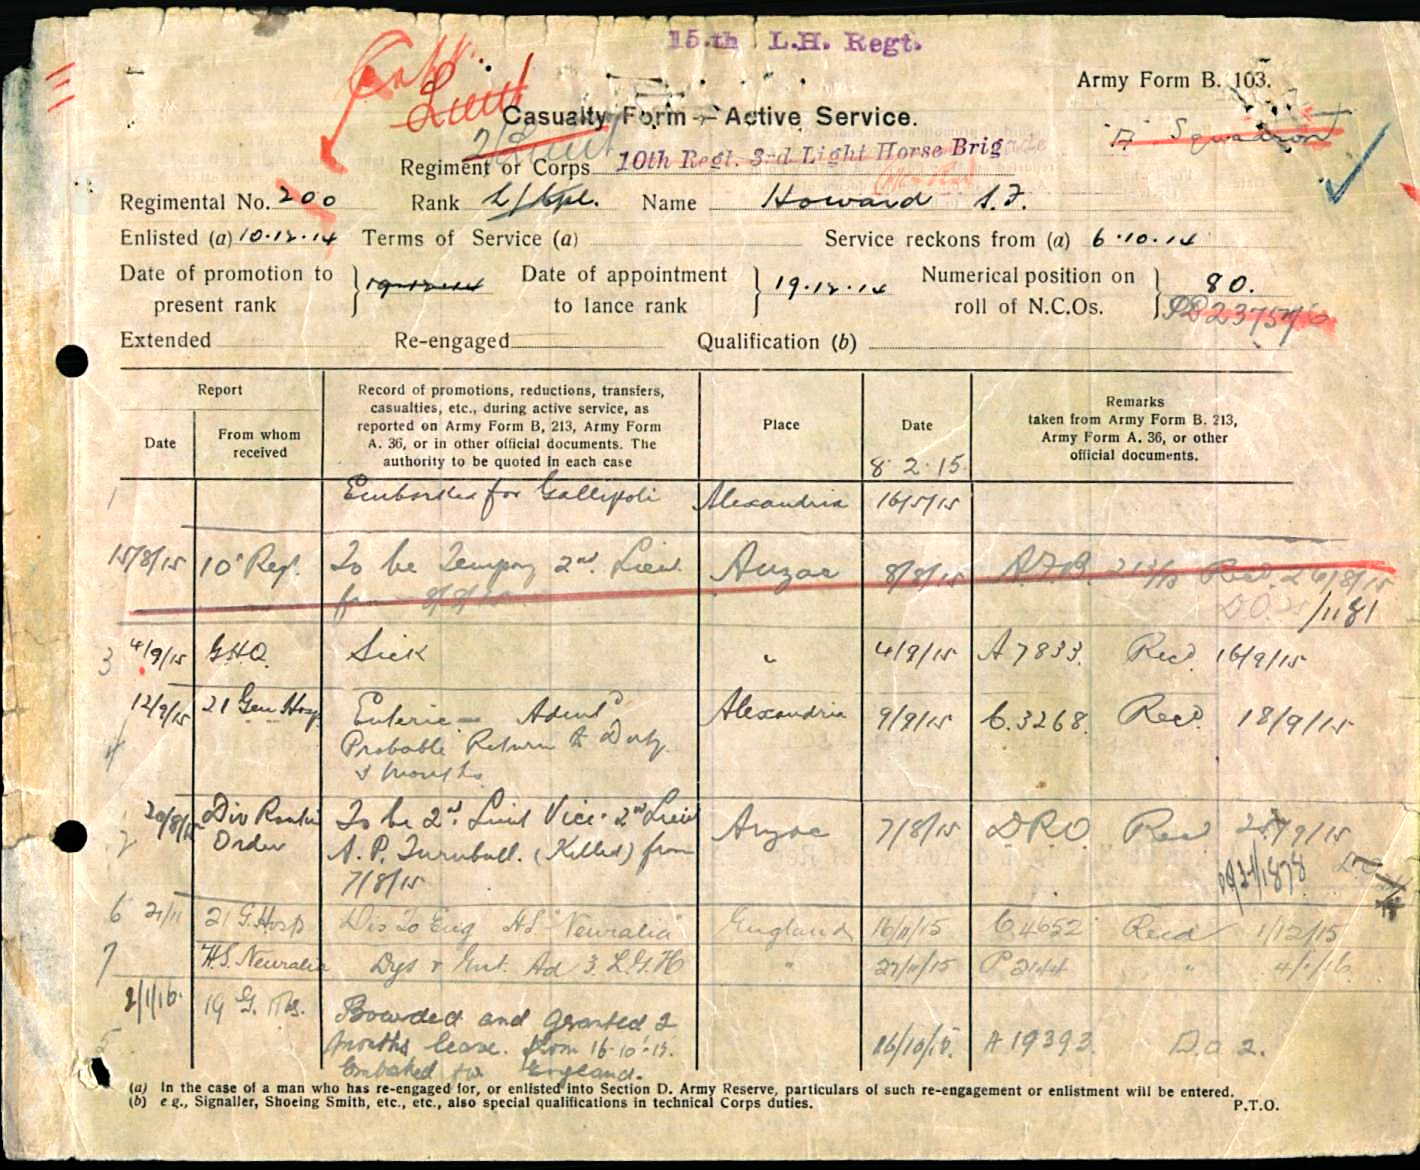 15.th L.H. Regt.
Army Form B. 103.
Capt.
Lieut
Casualty Form — Active Service.
"A" Squadron
2/Lieut
Regiment or Corps 10th Regt. 3rd Light Horse Brig
Regimental No. 200 Rank L/Cpl. Name Howard S.F.
Enlisted (a) 10.12.14 Terms of Service (a) Service reckons from (a) 6.10.14
Date of promotion to present rank } 19.12.14 Date of appointment to lance rank } 19.12.14 Numerical position on roll of N.C.Os. } 80.
Extended Re-engaged Qualification (b)
Report
Date
From whom received
Record of promotions, reductions, transfers,
casualties, etc., during active service, as
reported on Army Form B, 213, Army Form
A. 36, or in other official documents. The
authority to be quoted in each case
Place
Date
8 2 15
Remarks
taken from Army Form B. 213,
Army Form A. 36, or other
official documents.
1 Embarked for Gallipoli Alexandria 16/5/15
15/8/15 10 Regt. To be Tempory 2nd Lieut Anzac 8/8/15 A.F.B. 213 Recd 26/8/15
from 8/8/15 /1181
3 4/9/15 GHQ. Sick " 4/9/15 A 7833. Recd 16/9/15
4 12/9/15 21 Gen Hosp Enteric — Admtd Alexandria 9/9/15 C.3268. Recd 18/9/15
Probable Return to Duty
3 months
2 20/8/15 Div Routin To be 2nd Lieut Vice. 2nd Lieut Anzac 7/8/15 DRO Recd 25/9/15
Order A. P. Turnbull. (Killed) from
7/8/15 /1878
6 21/11 21 G.Hosp Dis To Eng HS "Neuralia" England 16/11/15 C.4652 Recd 1/12/15
7 H.S. Neuralia Dys & Ent. Ad 3. L.G.H " 27/11/15 P 2144 " 4/1/16
2/1/16. 19 G. Hos. Boarded and granted 2
5 months leave. from 16.10.15. 16/10/15. A 19393. D.o 2.
Embarked for England.
(a) In the case of a man who has re-engaged for, or enlisted into Section D. Army Reserve, particulars of such re-engagement or enlistment will be entered.
(b) e g., Signaller, Shoeing Smith, etc., etc., also special qualifications in technical Corps duties.
P.T.O.